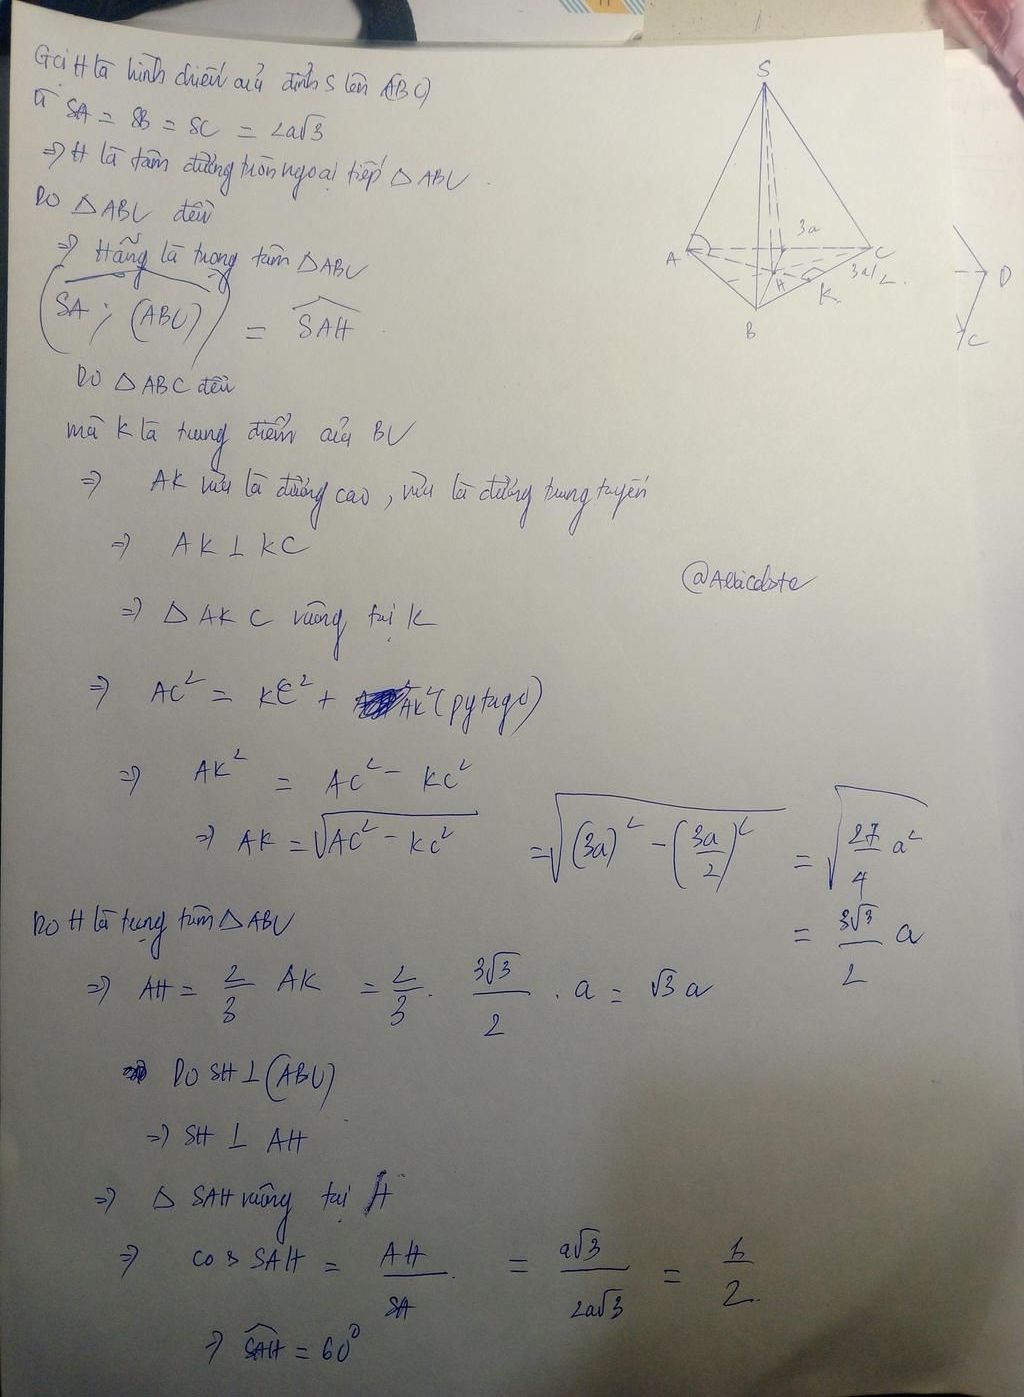 Gọi H là hình chiếu của đỉnh S lên (ABC)
Vì SA = SB = SC = 2a√3
⇒ H là tâm đường tròn ngoại tiếp △ ABC
Do △ ABC đều
⇒ H cũng là trọng tâm △ ABC
(SA ; (ABC)) = SAH
Do △ ABC đều
mà K là trung điểm của BC
⇒ AK vừa là đường cao, vừa là đường trung tuyến
⇒ AK ⊥ KC
⇒ △ AKC vuông tại K
⇒ AC² = KC² + AK² (pytago)
⇒ AK² = AC² - KC²
⇒ AK = √(AC² - KC²) = √((3a)² - (3a/2)²) = √(27/4 a²)
= 3√3/2 a
Do H là trọng tâm △ ABC
⇒ AH = 2/3 AK = 2/3 . 3√3/2 . a = √3 a
Do SH ⊥ (ABC)
⇒ SH ⊥ AH
⇒ △ SAH vuông tại H
⇒ cos SAH = AH/SA = a√3/2a√3 = 1/2
⇒ SAH = 60⁰
S
A
3a
C
H
3a/2
K
B
D
C
@Albiceleste